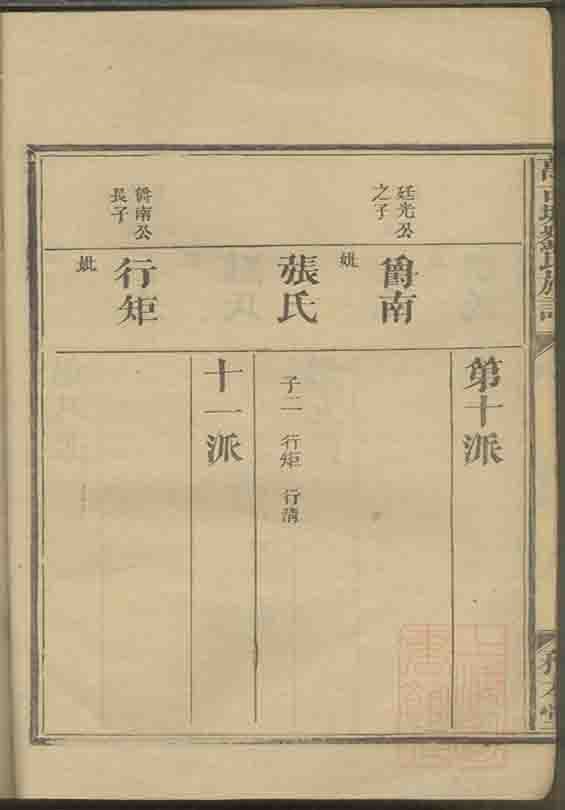 氏族
第十派
廷光公
之子
爵南
妣
張氏
子二 行矩 行清
十一派
爵南公
長子
行矩
妣